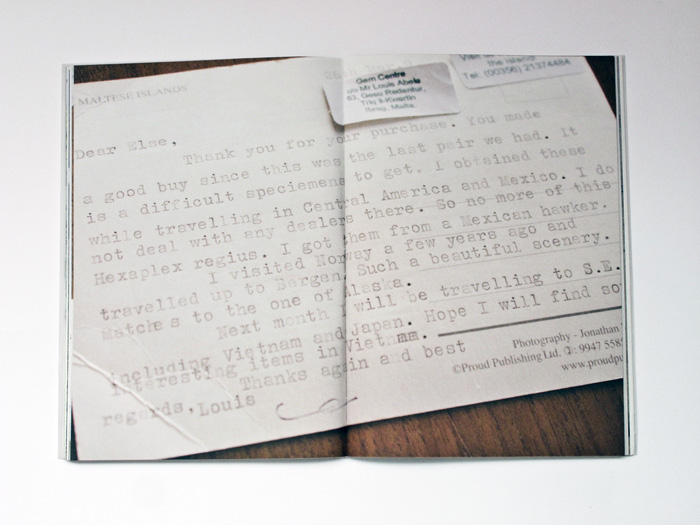 MALTESE ISLANDS
Gem Centre
c/o Mr Louis Abela
63, Gesu Redentur,
Triq il-Kwartin
Malta.
the island!
Tel: (00356) 21374484
Dear Else,
Thank you for your purchase. You made
a good buy since this was the last pair we had. It
is a difficult speciemens to get. I obtained these
while travelling in Central America and Mexico. I do
not deal with any dealers there. So no more of this
Hexaplex regius. I got them from a Mexican hawker.
I visited Norway a few years ago and
travelled up to Bergen. Such a beautiful scenery.
Matches to the one of Alaska.
Next month I will be travelling to S.E.
including Vietnam and Japan. Hope I will find so
interesting items in Vietnam.
Thanks again and best
regards, Louis
Photography - Jonathan
©Proud Publishing Ltd. ✆: 9947 558
www.proudp